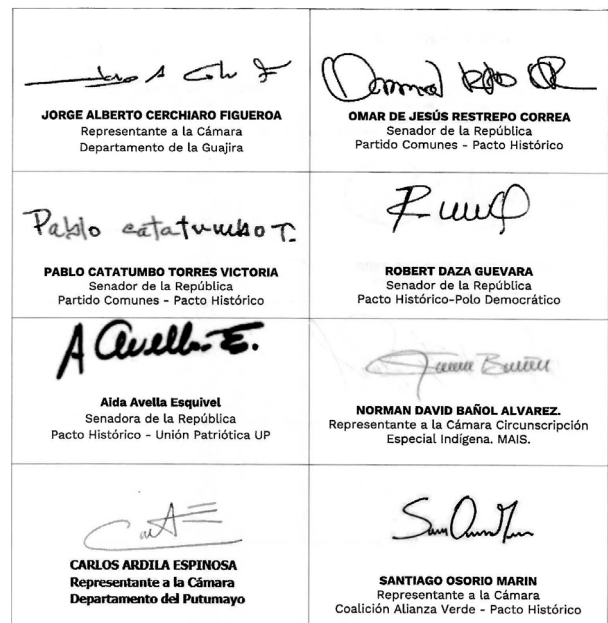 JORGE ALBERTO CERCHIARO FIGUEROA
Representante a la Cámara
Departamento de la Guajira
OMAR DE JESÚS RESTREPO CORREA
Senador de la República
Partido Comunes - Pacto Histórico
Pablo catatumbo T.
PABLO CATATUMBO TORRES VICTORIA
Senador de la República
Partido Comunes - Pacto Histórico
ROBERT DAZA GUEVARA
Senador de la República
Pacto Histórico-Polo Democrático
A Avella E.
Aida Avella Esquivel
Senadora de la República
Pacto Histórico - Unión Patriótica UP
NORMAN DAVID BAÑOL ALVAREZ.
Representante a la Cámara Circunscripción
Especial Indígena. MAIS.
CARLOS ARDILA ESPINOSA
Representante a la Cámara
Departamento del Putumayo
SANTIAGO OSORIO MARIN
Representante a la Cámara
Coalición Alianza Verde - Pacto Histórico